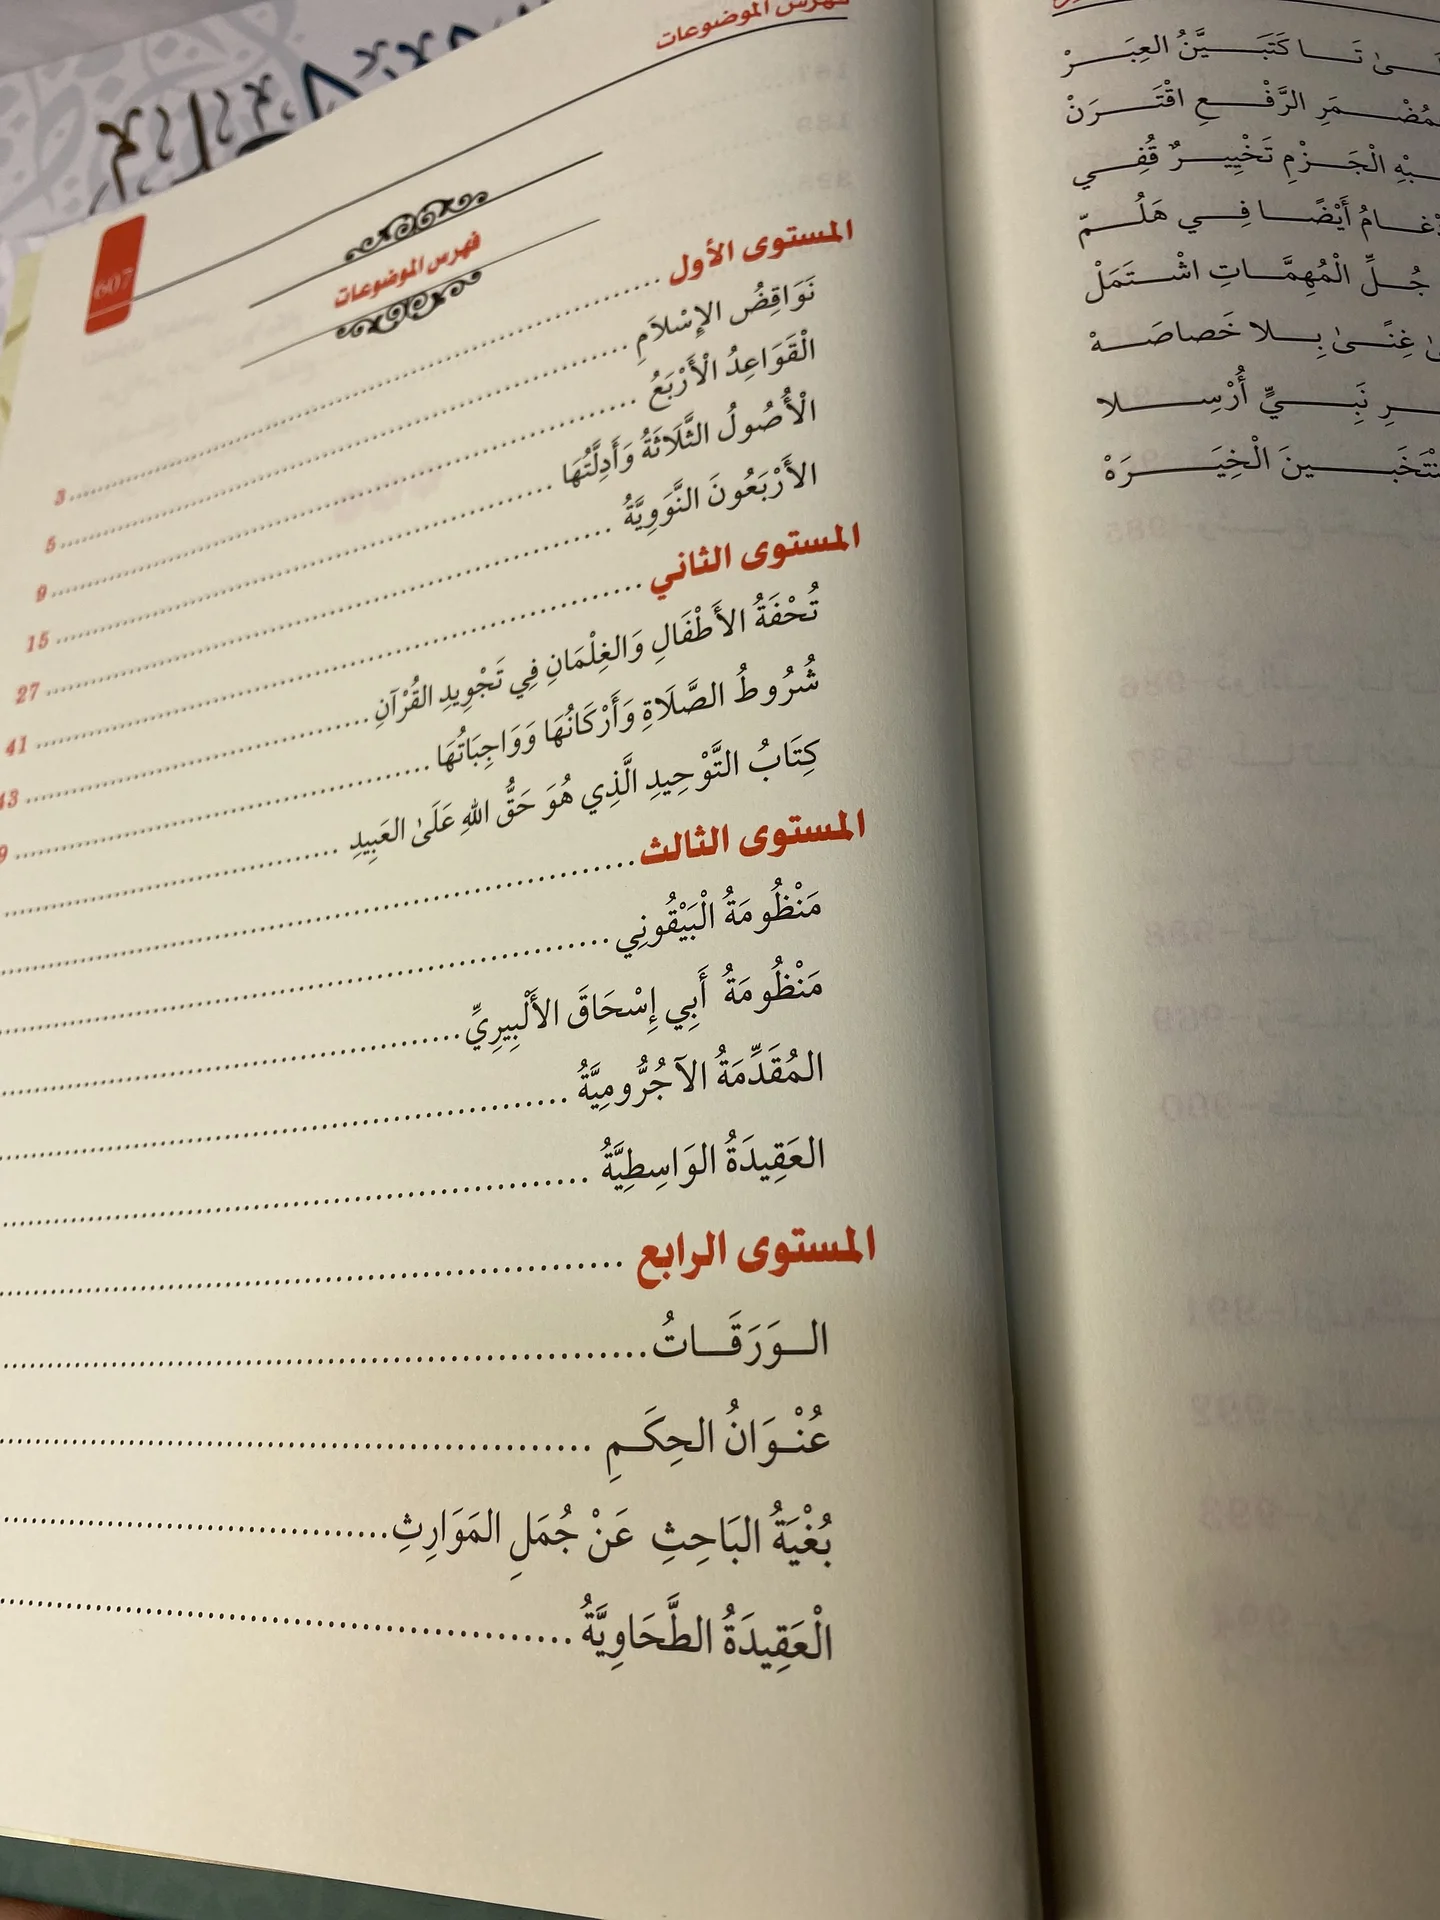 فهرس الموضوعات
607
فهرس الموضوعات
المستوى الأول ........ 3
نَوَاقِضُ الإِسْلَامِ ........ 5
الْقَوَاعِدُ الْأَرْبَعُ ........ 9
الْأُصُولُ الثَّلَاثَةُ وَأَدِلَّتُهَا ........ 15
الأَرْبَعُونَ النَّوَوِيَّةُ ........ 27
المستوى الثاني ........ 41
تُحْفَةُ الأَطْفَالِ وَالغِلْمَانِ فِي تَجْوِيدِ القُرْآنِ ........
شُرُوطُ الصَّلَاةِ وَأَرْكَانُهَا وَوَاجِبَاتُهَا ........
كِتَابُ التَّوْحِيدِ الَّذِي هُوَ حَقُّ اللهِ عَلَىٰ العَبِيدِ ........
المستوى الثالث ........
مَنْظُومَةُ الْبَيْقُونِي ........
مَنْظُومَةُ أَبِي إِسْحَاقَ الأَلْبِيرِيِّ ........
المُقَدِّمَةُ الآجُرُّومِيَّةُ ........
العَقِيدَةُ الوَاسِطِيَّةُ ........
المستوى الرابع ........
الـوَرَقَـاتُ ........
عُنْـوَانُ الحِكَـمِ ........
بُغْيَةُ البَاحِثِ عَنْ جُمَلِ المَوَارِثِ ........
الْعَقِيدَةُ الطَّحَاوِيَّةُ ........
تَـا كَتَبَيَّنُ العِبَـرْ
الرَّفْـعِ اقْتَـرَنْ
الْجَـزْمِ تَخْيِيـرٌ قُفِـي
أَيْضًـا فِـي هَلُـمّ
جُـلِّ الْمُهِمَّـاتِ اشْـتَمَلْ
غِنًـىٰ بِـلا خَصاصَـهْ
نَبِـيٍّ أُرْسِـلا
الْخِيَـرَهْ